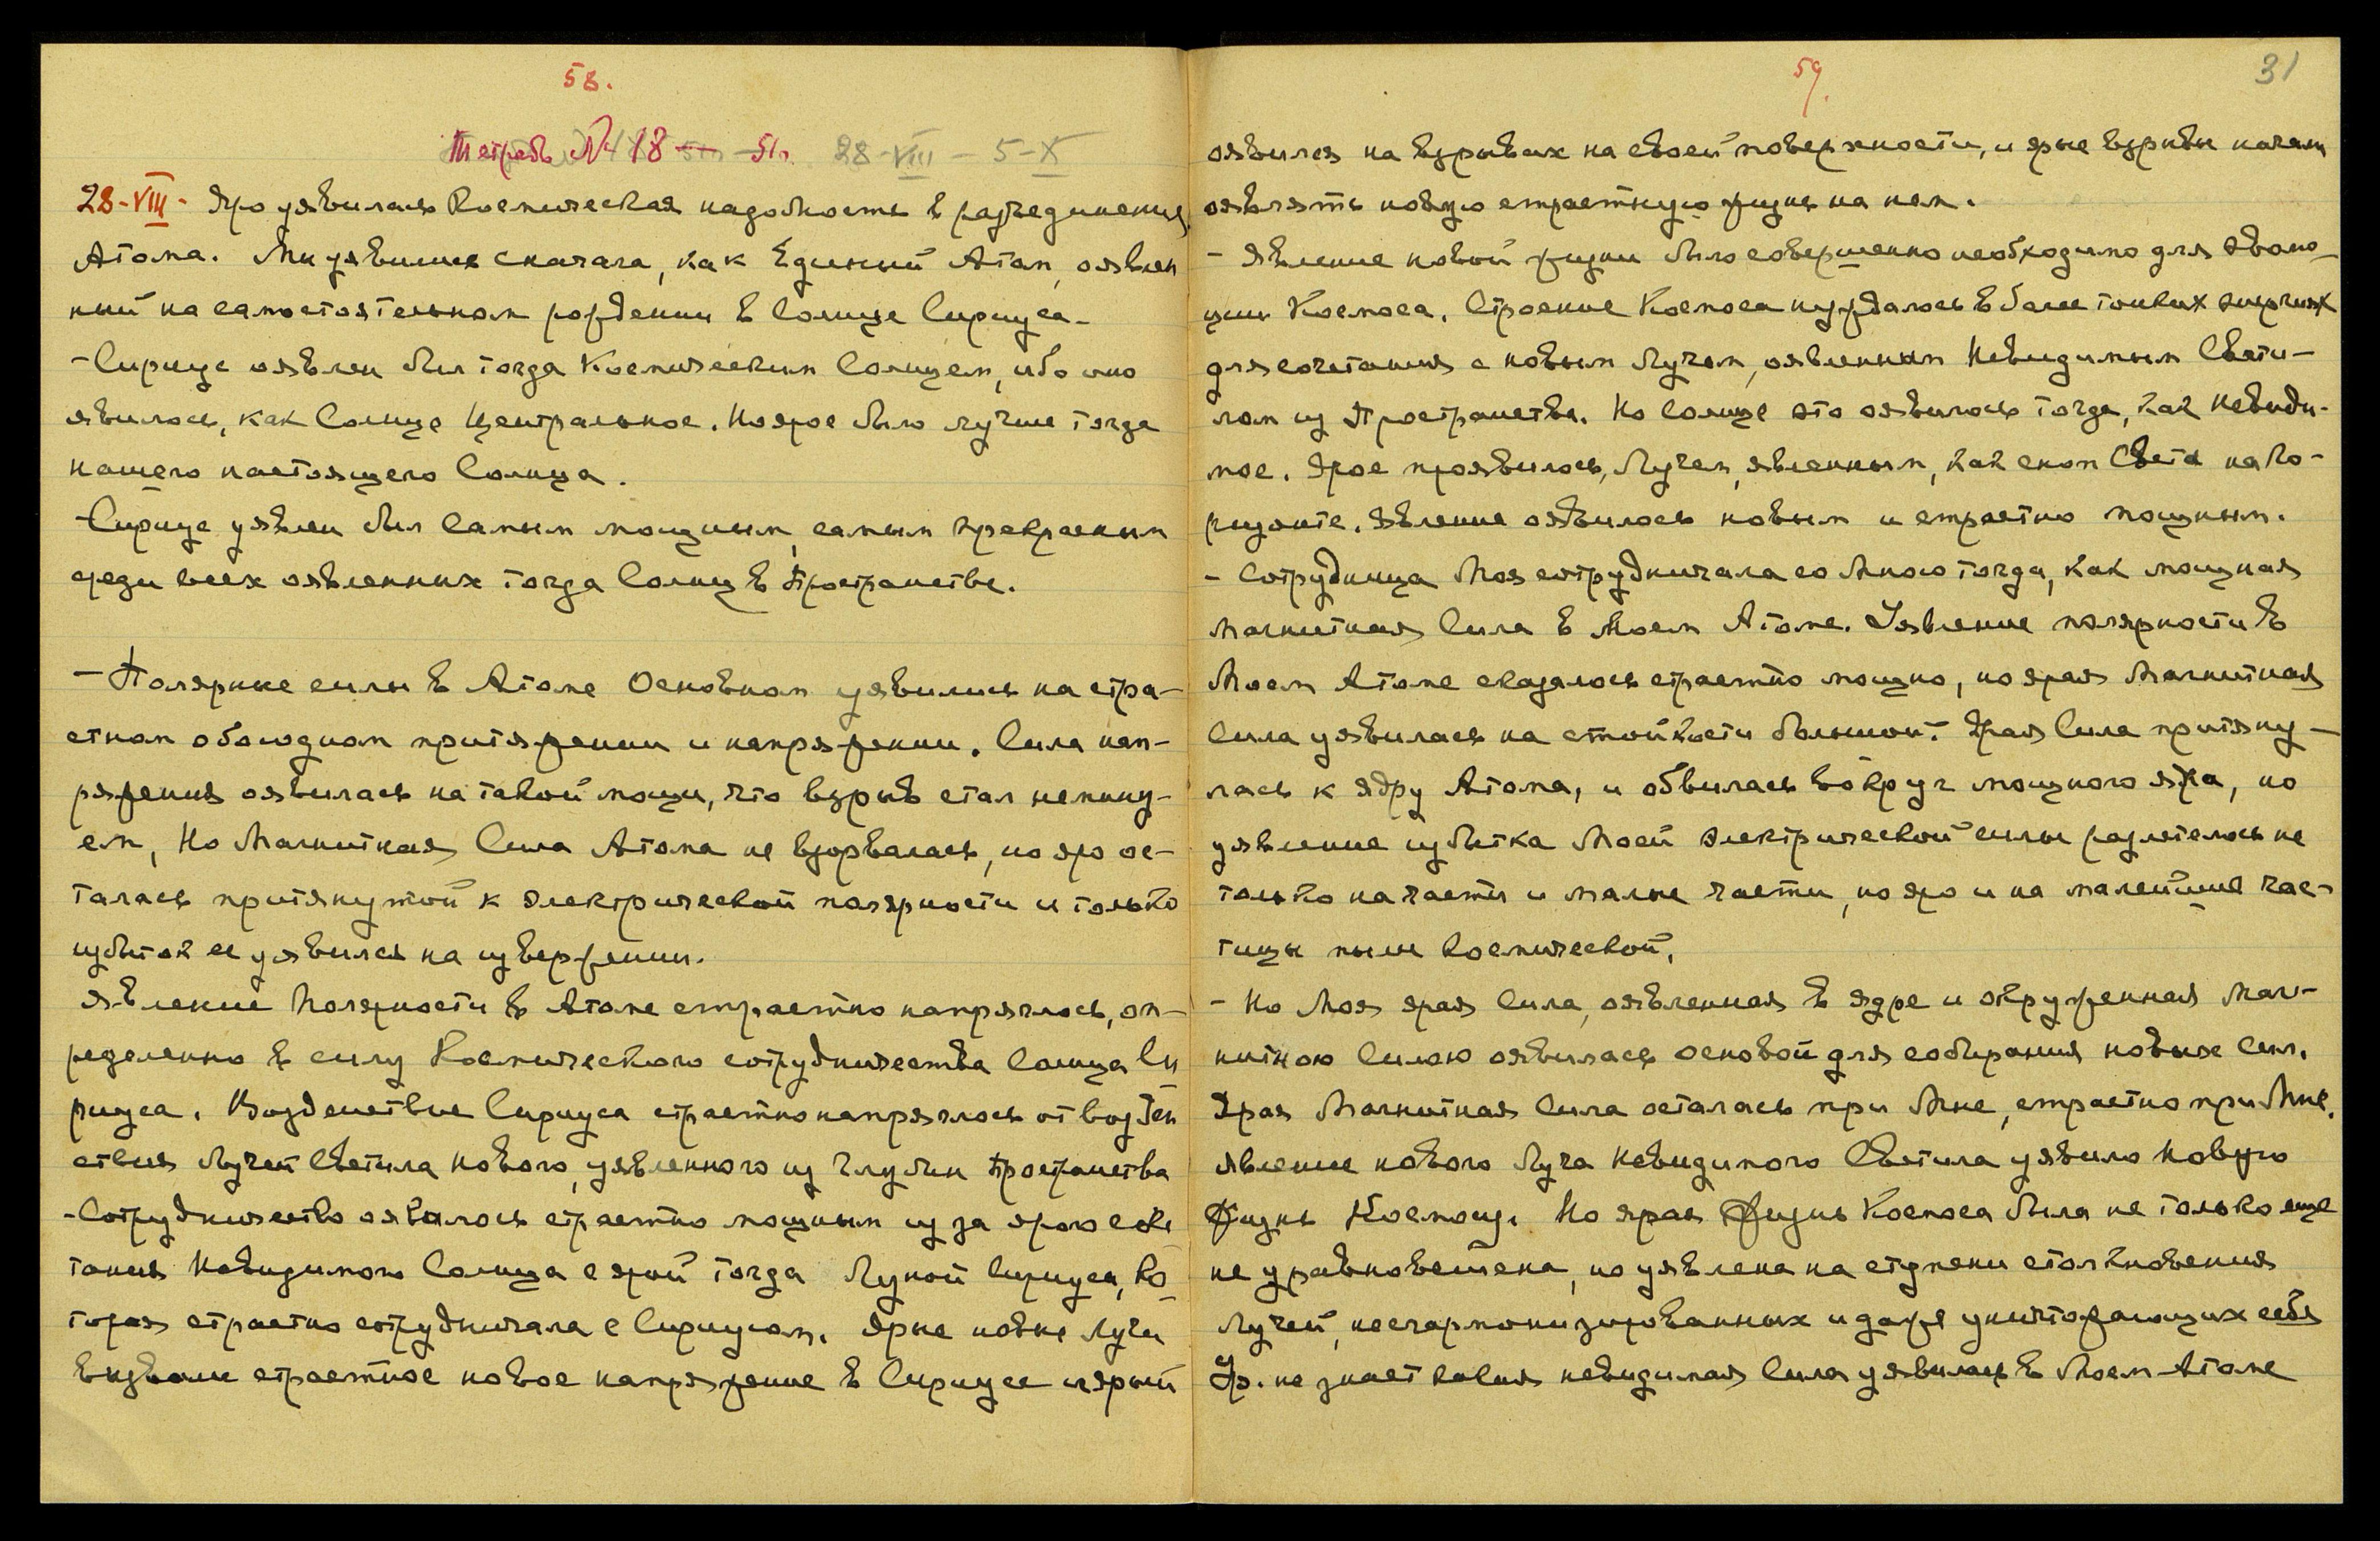 58.
Тетрадь № 18 — 51г. 28-VIII — 5-X
28-VIII- Яро уявилась Космическая надобность в разъединении
Атома. Мы уявились сначала, как Единый Атом, оявлен
ный на самостоятельном рождении в Солнце Сириуса.
- Сириус оявлен был тогда Космическим Солнцем, ибо оно
явилось, как Солнце Центральное. Но ярое было лучше тогда
нашего настоящего Солнца.
- Сириус уявлен был самым мощным, самым прекрасным
среди всех оявленных тогда Солнц в Пространстве.
- Полярные силы в Атоме Основном уявились на стра-
стном обоюдном притяжении и напряжении. Сила нап-
ряжения оявилась на такой мощи, что взрыв стал немину-
ем, Но Магнитная Сила Атома не взорвалась, но яро ос-
талась притянутой к электрической полярности и только
избыток ее уявился на извержении.
Явление Полярности в Атоме страстно напряглось, оп-
ределенно в силу Космического сотрудничества Солнца Си
риуса. Воздействие Сириуса страстно напряглось от воздей
ствия Лучей Светила Нового, уявленного из Глубин Пространства
- Сотрудничество оявилось страстно мощным из за ярого соче
тания Невидимого Солнца с ярой тогда Луной Сириуса, Ко-
торая страстно сотрудничала с Сириусом. Ярые новые Лучи
вызвали страстное новое напряжение в Сириусе и ярый
59.
31
оявился на взрывах на своей поверхности, и ярые взрывы начали
оявлять новую страстную жизнь на нем.
- Явление новой жизни было совершенно необходимо для эволю-
ции Космоса. Строение Космоса нуждалось в более тонких энергиях
для сочетания с новым Лучом, оявленным Невидимым Свети-
лом из Пространства. Но Солнце это оявилось тогда, как Невиди-
мое. Ярое проявилось, Лучем, явленным, как сноп Света на Го-
ризонте. Явление оявилось новым и страстно мощным.
- Сотрудница Моя сотрудничала со Мною тогда, как мощная
Магнитная Сила в Моем Атоме. Уявление полярности в
Моем Атоме сказалось страстно мощно, но ярая Магнитная
Сила уявилась на стойкости большой. Ярая Сила притяну-
лась к ядру Атома, и обвилась вокруг мощного ядра, но
уявление избытка Моей электрической силы разлетелось не
только на части и малые части, но яро и на малейшие час-
тицы пыли Космической.
- Но Моя ярая Сила, оявленная в ядре и окруженная Маг-
нитною Силою оявилась основой для собирания новых Сил.
Ярая Магнитная Сила осталась при Мне, страстно при Мне.
Явление нового Луча Невидимого Светила уявило Новую
Жизнь Космосу. Но ярая Жизнь Космоса была не только еще
не уравновешена, но уявлена на ступени столкновения
Лучей, несгармонизированных и даже уничтожающих себя
Ур. не знает какая невидимая Сила уявилась в Моем Атоме